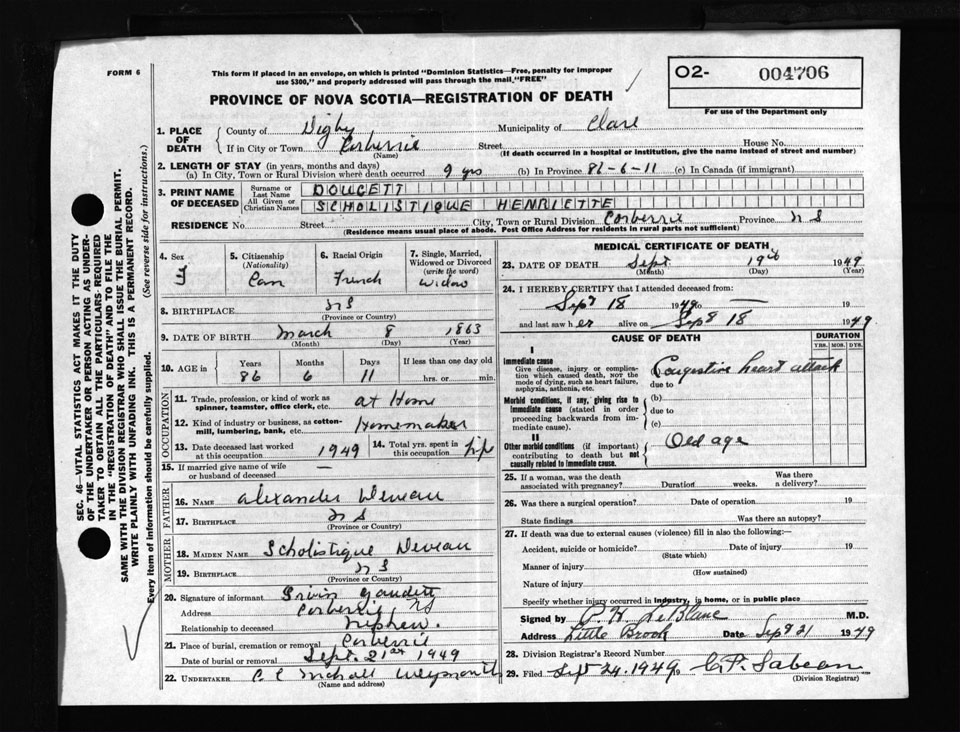 FORM 6
This form if placed in an envelope, on which is printed "Dominion Statistics—Free, penalty for improper
use $300," and properly addressed will pass through the mail "FREE"
O2- 004706
For use of the Department only
PROVINCE OF NOVA SCOTIA—REGISTRATION OF DEATH
1. PLACE OF DEATH
County of Digby Municipality of Clare
If in City or Town Corberrie Street House No.
(Name) (If death occurred in a hospital or institution, give the name instead of street and number)
2. LENGTH OF STAY (in years, months and days)
(a) In City, Town or Rural Division where death occurred 9 yrs (b) In Province 86-6-11 (c) In Canada (if immigrant)
3. PRINT NAME OF DECEASED
Surname or Last Name DOUCETT
All Given or Christian Names SCHOLISTIQUE HENRIETTE
RESIDENCE No. Street City, Town or Rural Division Corberrie Province N S
(Residence means usual place of abode. Post Office Address for residents in rural parts not sufficient)
4. Sex F
5. Citizenship (Nationality) Can
6. Racial Origin French
7. Single, Married, Widowed or Divorced (write the word) Widow
8. BIRTHPLACE N S
(Province or Country)
9. DATE OF BIRTH March 8 1863
(Month) (Day) (Year)
10. AGE in Years Months Days If less than one day old
86 6 11 hrs. or min.
OCCUPATION
11. Trade, profession, or kind of work as
spinner, teamster, office clerk, etc. at Home
12. Kind of industry or business, as cotton-
mill, lumbering, bank, etc. Homemaker
13. Date deceased last worked at this occupation 1949
14. Total yrs. spent in this occupation Life
15. If married give name of wife
or husband of deceased —
FATHER
16. NAME Alexander Deveau
17. BIRTHPLACE N S
(Province or Country)
MOTHER
18. MAIDEN NAME Scholistique Deveau
19. BIRTHPLACE N S
(Province or Country)
20. Signature of informant Irvin Gaudett
Address Corberrie, NS
Relationship to deceased Nephew.
21. Place of burial, cremation or removal Corberrie
Date of burial or removal Sept. 21st 1949
22. UNDERTAKER Weymouth
(Name and address)
MEDICAL CERTIFICATE OF DEATH
23. DATE OF DEATH Sept 19th 1949
(Month) (Day) (Year)
24. I HEREBY CERTIFY that I attended deceased from:
Sept 18 1949 to — 19
and last saw her alive on Sept 18 1949
CAUSE OF DEATH
DURATION
YRS. MOS. DYS.
I
Immediate cause
Give disease, injury or complica-
tion which caused death, NOT the
mode of dying, such as heart failure,
asphyxia, asthenia, etc.
Congestive heart attack
due to
Morbid conditions, if any, giving rise to
immediate cause (stated in order
proceeding backwards from im-
mediate cause).
(b)
due to
(c)
II
Other morbid conditions (if important)
contributing to death but not
causally related to immediate cause.
Old age
25. If a woman, was the death
associated with pregnancy? Duration weeks. Was there a delivery?
26. Was there a surgical operation? Date of operation 19
State findings Was there an autopsy?
27. If death was due to external causes (violence) fill in also the following:
Accident, suicide or homicide? Date of injury 19
(State which)
Manner of injury
(How sustained)
Nature of injury
Specify whether injury occurred in industry, in home, or in public place
Signed by P. H. LeBlanc M.D.
Address Little Brook Date Sept 21 1949
28. Division Registrar's Record Number
29. Filed Sept 24, 1949 Sabean
(Division Registrar)
SEC. 46—VITAL STATISTICS ACT MAKES IT THE DUTY
OF THE UNDERTAKER OR PERSON ACTING AS UNDER-
TAKER TO OBTAIN ALL THE PARTICULARS REQUIRED
IN THE "REGISTRATION OF DEATH" AND TO FILE THE
SAME WITH THE DIVISION REGISTRAR WHO SHALL ISSUE THE BURIAL PERMIT.
WRITE PLAINLY WITH UNFADING INK. THIS IS A PERMANENT RECORD.
Every item of information should be carefully supplied. (See reverse side for instructions.)